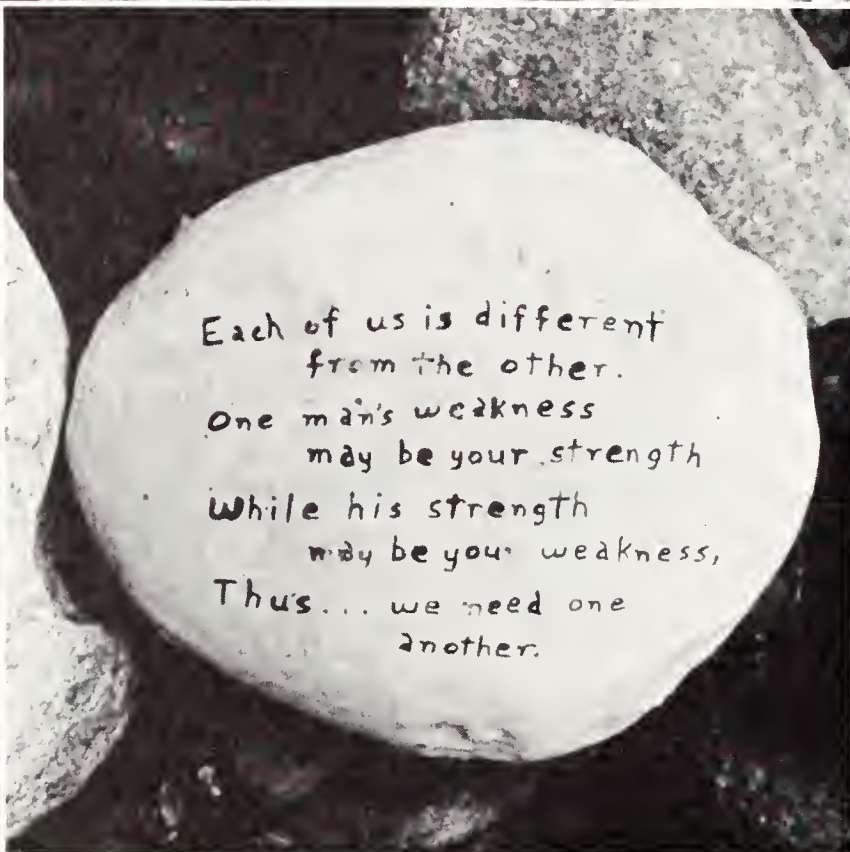 Each of us is different
from the other.
One man's weakness
may be your strength
While his strength
may be your weakness,
Thus... we need one
another.